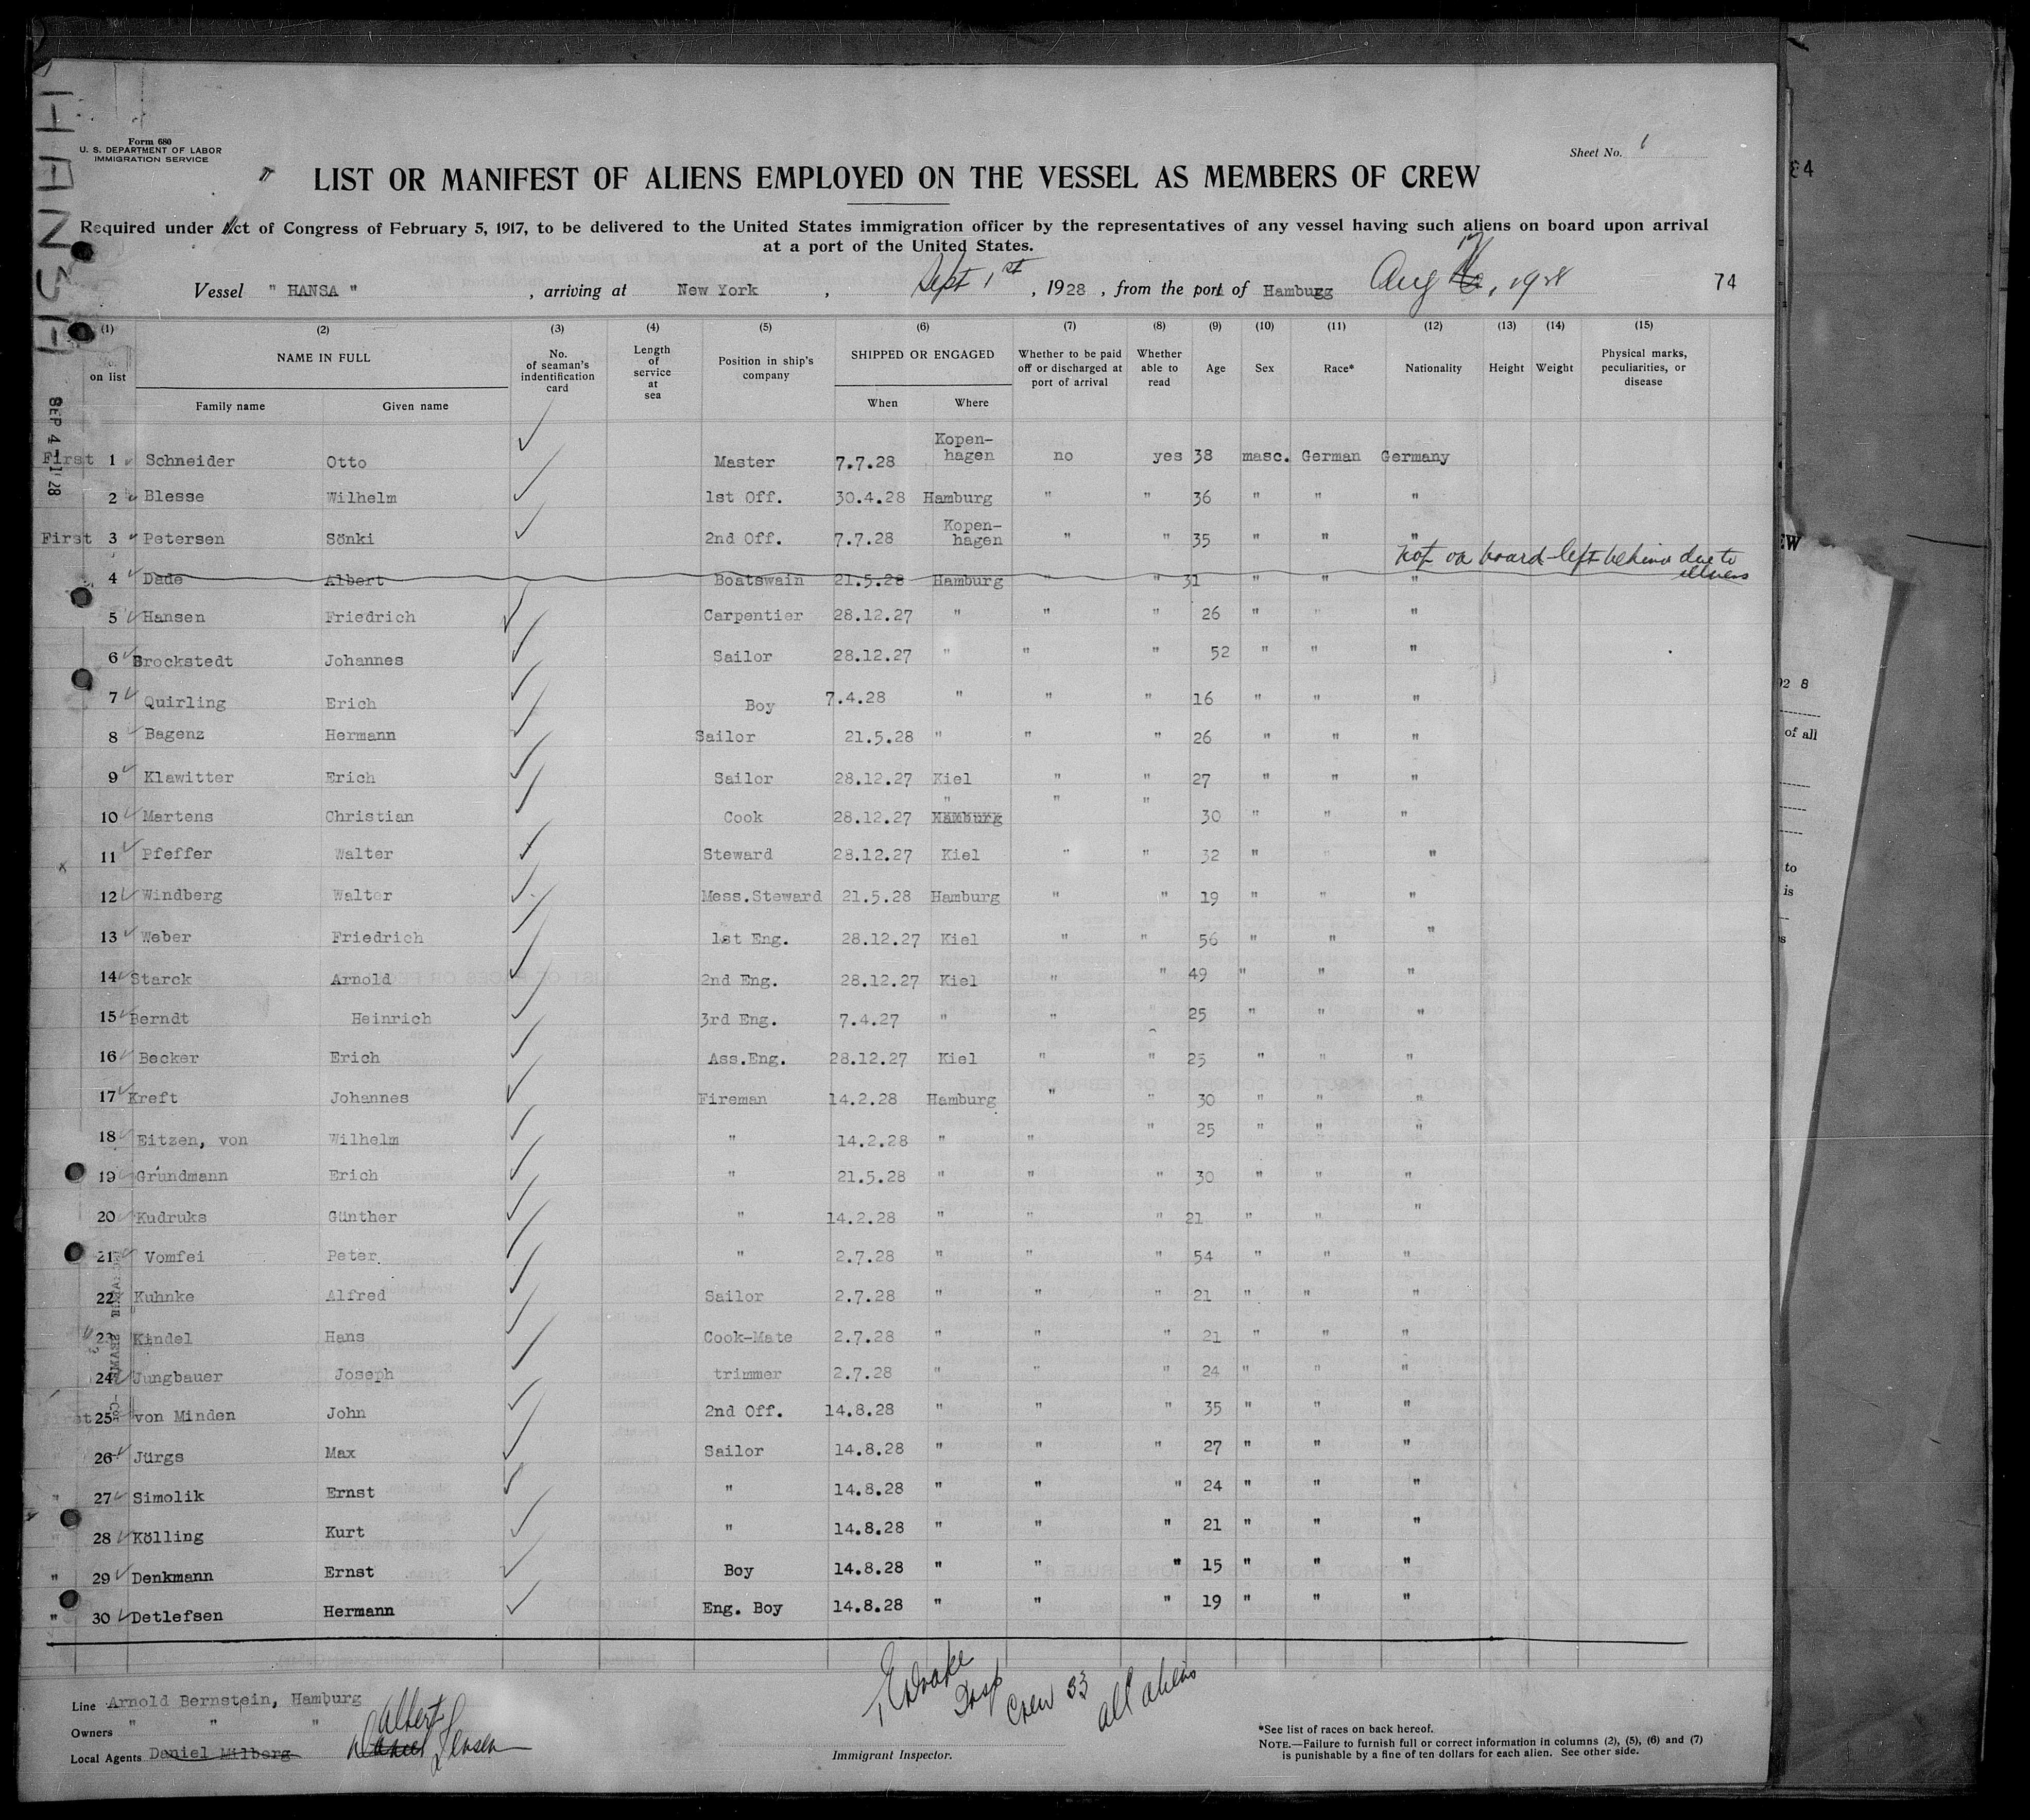 HANSA
Form 680
U. S. DEPARTMENT OF LABOR
IMMIGRATION SERVICE
Sheet No. 1
LIST OR MANIFEST OF ALIENS EMPLOYED ON THE VESSEL AS MEMBERS OF CREW
Required under Act of Congress of February 5, 1917, to be delivered to the United States immigration officer by the representatives of any vessel having such aliens on board upon arrival
at a port of the United States.
Vessel " HANSA " , arriving at New York , Sept 1st , 1928 , from the port of Hamburg Aug 17, 1928 74
(1) (2) (3) (4) (5) (6) (7) (8) (9) (10) (11) (12) (13) (14) (15)
No. on list
NAME IN FULL
Family name Given name
No. of seaman's indentification card
Length of service at sea
Position in ship's company
SHIPPED OR ENGAGED
When Where
Whether to be paid off or discharged at port of arrival
Whether able to read
Age Sex Race* Nationality Height Weight
Physical marks, peculiarities, or disease
SEP 4 1928
First 1 Schneider Otto Master 7.7.28 Kopen-hagen no yes 38 masc. German Germany
2 Blesse Wilhelm 1st Off. 30.4.28 Hamburg " " 36 " " "
First 3 Petersen Sönki 2nd Off. 7.7.28 Kopen-hagen " " 35 " " "
not on board left behind due to illness
4 Dade Albert Boatswain 21.5.28 Hamburg " " 31 " " "
5 Hansen Friedrich Carpentier 28.12.27 " " " 26 " " "
6 Brockstedt Johannes Sailor 28.12.27 " " " 52 " " "
7 Quirling Erich Boy 7.4.28 " " " 16 " " "
8 Bagenz Hermann Sailor 21.5.28 " " " 26 " " "
9 Klawitter Erich Sailor 28.12.27 Kiel " " 27 " " "
10 Martens Christian Cook 28.12.27 " Hamburg " " 30 " " "
x 11 Pfeffer Walter Steward 28.12.27 Kiel " " 32 " " "
12 Windberg Walter Mess.Steward 21.5.28 Hamburg " " 19 " " "
13 Weber Friedrich 1st Eng. 28.12.27 Kiel " " 56 " " "
14 Starck Arnold 2nd Eng. 28.12.27 Kiel " " 49 " " "
15 Berndt Heinrich 3rd Eng. 7.4.27 " " " 25 " " "
16 Becker Erich Ass.Eng. 28.12.27 Kiel " " 25 " " "
17 Kreft Johannes Fireman 14.2.28 Hamburg " " 30 " " "
18 Eitzen, von Wilhelm " 14.2.28 " " " 25 " " "
19 Grundmann Erich " 21.5.28 " " " 30 " " "
20 Kudruks Günther " 14.2.28 " " " 21 " " "
21 Vomfei Peter " 2.7.28 " " " 54 " " "
22 Kuhnke Alfred Sailor 2.7.28 " " " 21 " " "
23 Kindel Hans Cook-Mate 2.7.28 " " " 21 " " "
24 Jungbauer Joseph trimmer 2.7.28 " " " 24 " " "
First 25 von Minden John 2nd Off. 14.8.28 " " " 35 " " "
" 26 Jürgs Max Sailor 14.8.28 " " " 27 " " "
" 27 Simolik Ernst " 14.8.28 " " " 24 " " "
28 Kölling Kurt " 14.8.28 " " " 21 " " "
" 29 Denkmann Ernst Boy 14.8.28 " " " 15 " " "
" 30 Detlefsen Hermann Eng. Boy 14.8.28 " " " 19 " " "
Line Arnold Bernstein, Hamburg
Owners " " "
Local Agents Daniel Milberg
Albert Jensen
Drake Insp
Crew 33
all aliens
Immigrant Inspector.
*See list of races on back hereof.
NOTE.—Failure to furnish full or correct information in columns (2), (5), (6) and (7)
is punishable by a fine of ten dollars for each alien. See other side.
84
EW
of all
to
is